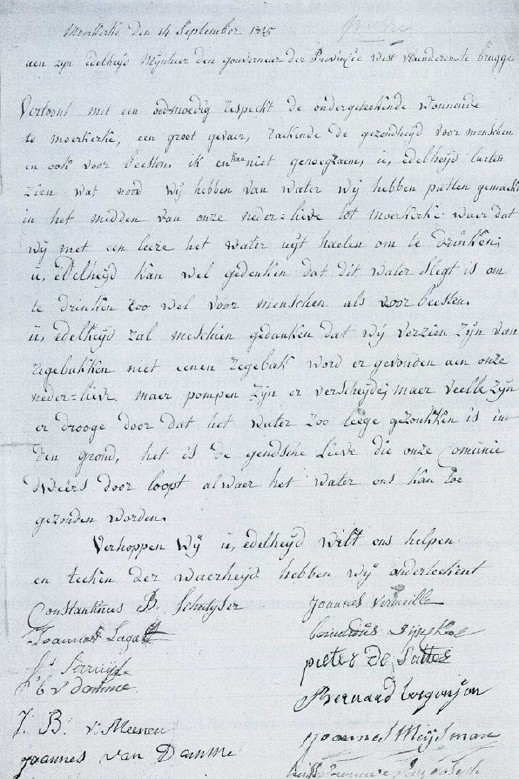 Moerkerke den 14 September 1825
aen zyn edelheyd Mynheer den gouverneur der Provincie West vlaenderen te brugge
Vertoont met een oodmoedig respeckt de ondergeteekende woonende
te moerkerke, een groot gevaer, raekende de gezondheyd voor menschen
en ook voor beesten. ik en kan niet genoegzaem, u, edelheyd laeten
zien wat nood wy hebben van water wy hebben putten gemackt
in het midden van onze neder=lieve tot Moerkerke waer dat
wy met een leere het water uyt haelen om te drinken;
u, Edelheyd kan wel gedenken dat dit water slegt is om
te drinken zoo wel voor menschen als voor beesten.
u, edelheyd zal meschien gedenken dat wy verzien zyn van
regebakken niet eenen regebak word er gevonden aen onze
neder=lieve maer pompen zyn er verscheyde; maer veelle zyn
er drooge door dat het water zoo leege gezonkken is in
den grond, het is de gendsche Lieve die onze Comunie
dweers door loopt alwaer het water ons kan toe
gezonden worden.
Verhoppen wy u, edelheyd wilt ons helpen
en teeken der waerheyd hebben wy onderteekent
Constantinus B. Schutyser Joannes Vermeille
Joannes
pieter de
v damme Bernard
J. B. v Meenen Joannes Meysman
Joannes van Damme